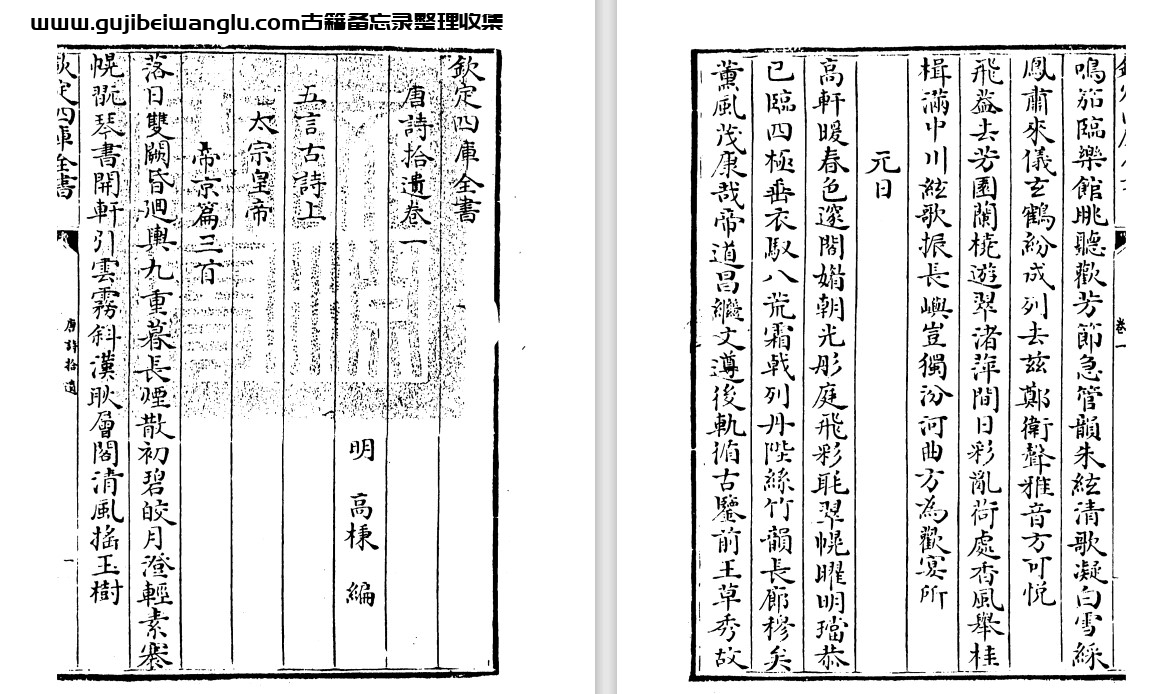 www.gujibeiwanglu.com古籍备忘录整理收集
欽定四庫全書
唐詩拾遺卷一
明 高棅 編
五言古詩上
太宗皇帝
帝京篇三首
落日雙闕昏廻輿九重暮長煙散初碧皎月澄輕素搴
幌翫琴書開軒引雲霧斜漢耿層閣清風搖玉樹
欽定四庫全書
唐詩拾遺
一
卷一
鳴笳臨樂館眺聽歡芳節急管韻朱絃清歌凝白雪綵
鳳肅來儀玄鶴紛成列去兹鄭衛聲雅音方可悦
飛葢去芳園蘭橈遊翠渚萍間日彩亂荷處香風舉桂
楫滿中川絃歌振長嶼豈獨汾河曲方為歡宴所
元日
高軒暖春色邃閣媚朝光彤庭飛彩眊翠幌曜明璫恭
已臨四極垂衣馭八荒霜戟列丹陛絲竹韻長廊穆矣
薰風茂康哉帝道昌繼文遵後軌循古鑒前王草秀故